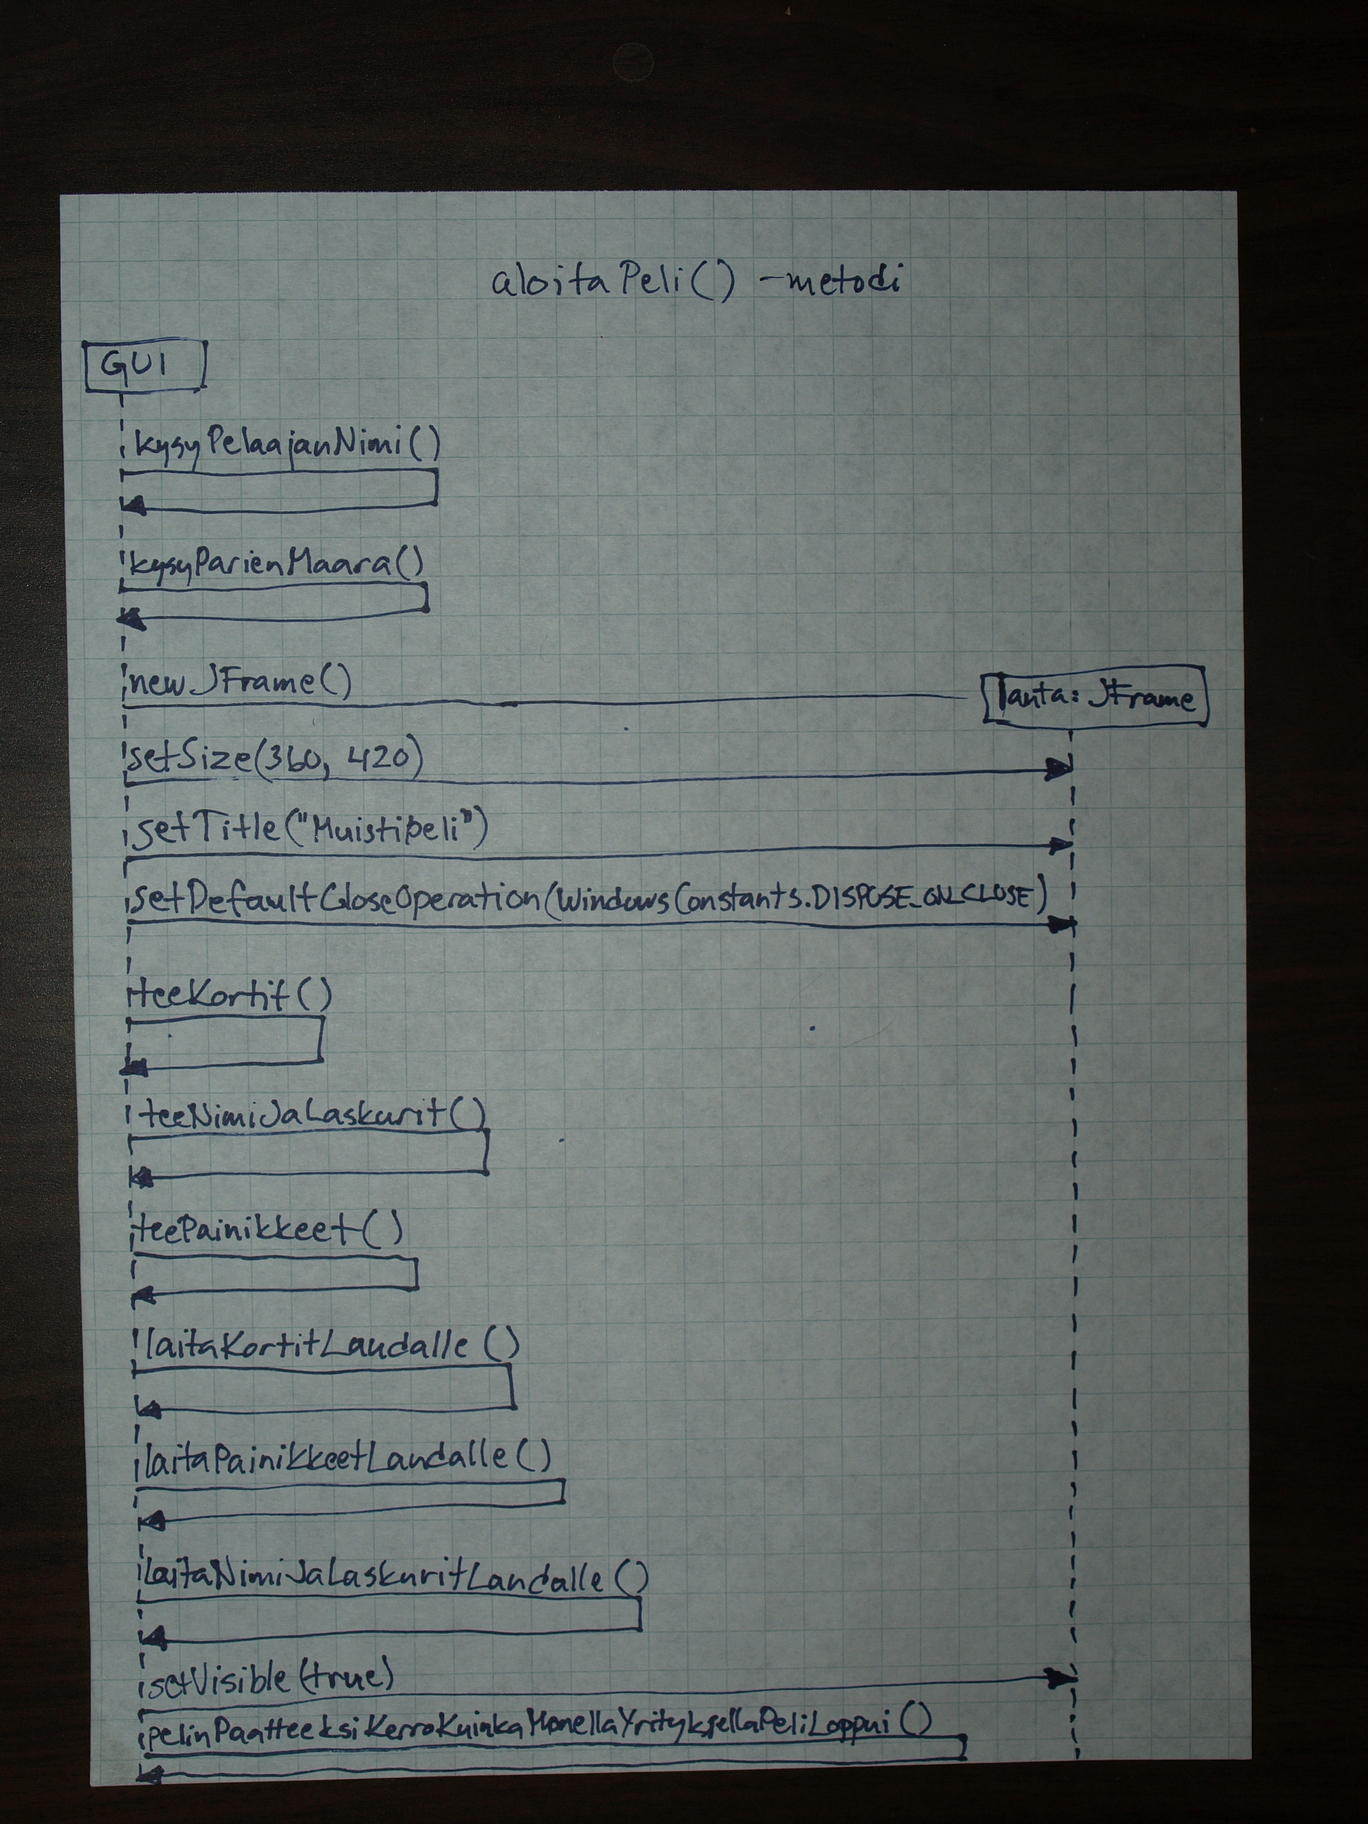 aloitaPeli() -metodi
GUI
kysyPelaajanNimi()
kysyParienMaara()
new JFrame()
lauta: JFrame
setSize(360, 420)
setTitle("Muistipeli")
setDefaultCloseOperation(WindowsConstants.DISPOSE_ON_CLOSE)
teeKortit()
teeNimiJaLaskurit()
teePainikkeet()
laitaKortitLaudalle()
laitaPainikkeetLaudalle()
laitaNimiJaLaskuritLaudalle()
setVisible(true)
pelinPaatteeksiKerroKuinkaMonellaYrityksellaPeliLoppui()